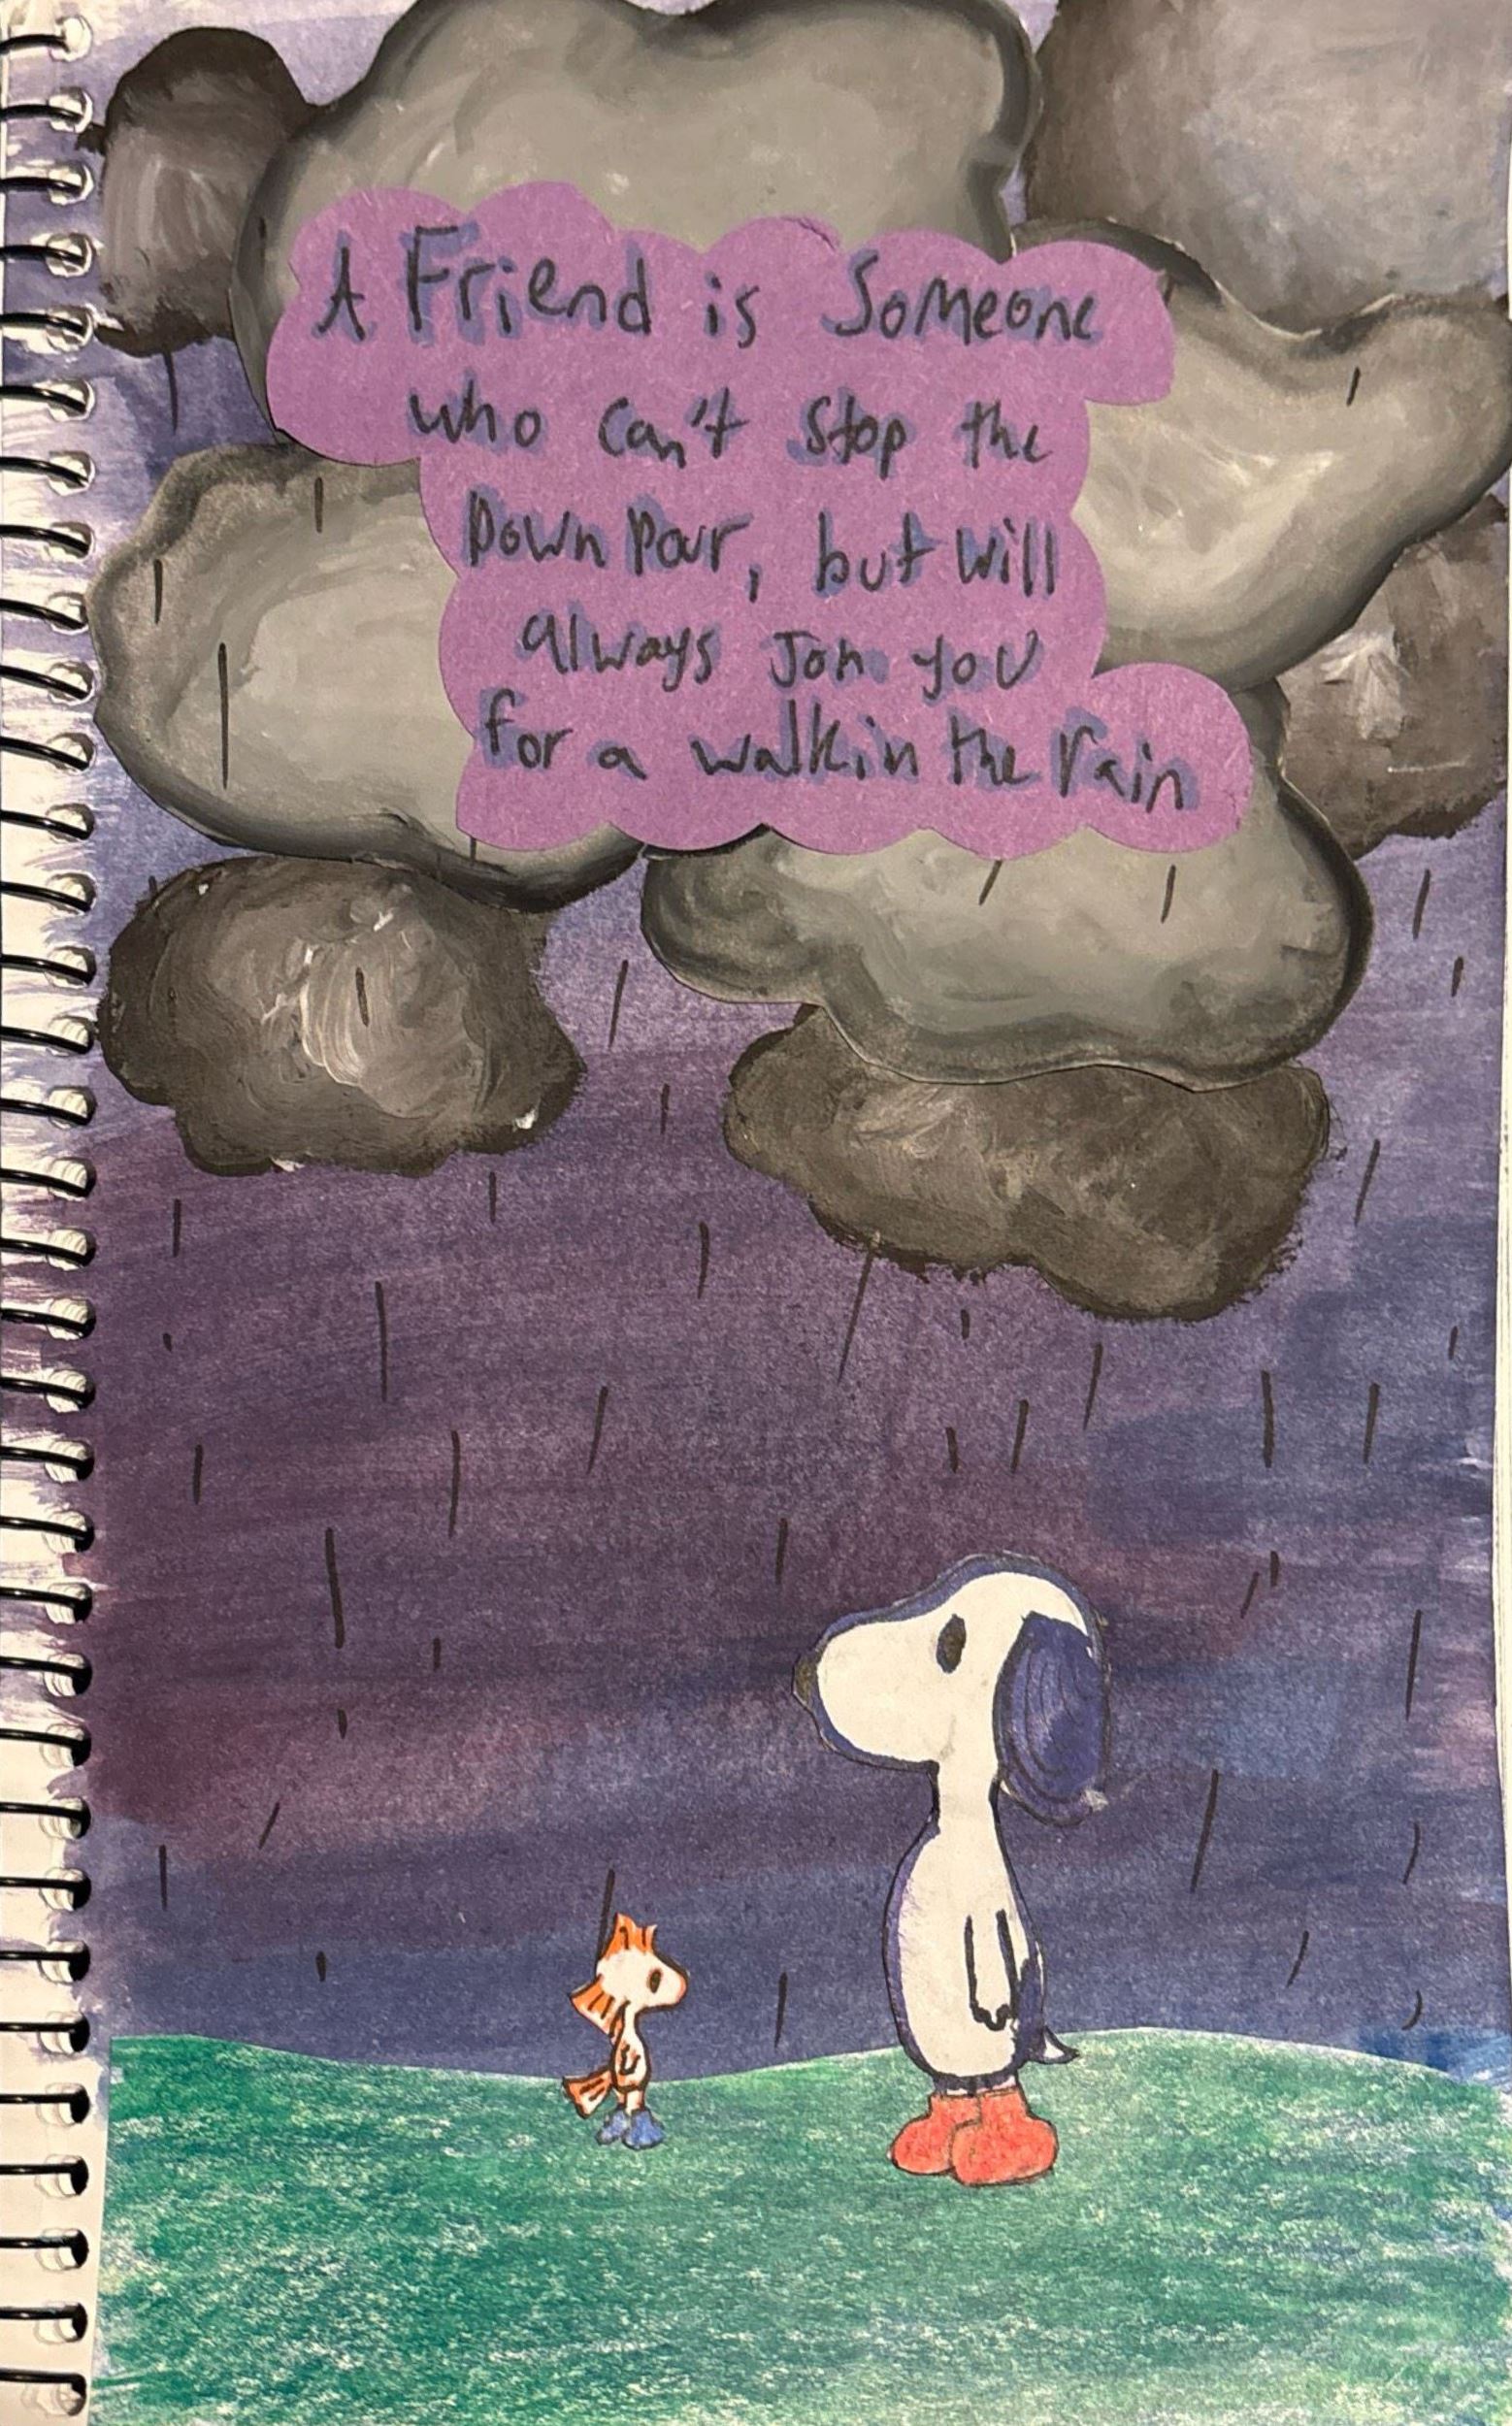 A Friend is Someone
who can't stop the
Down Pour, but will
always Jon you
for a walk in the rain